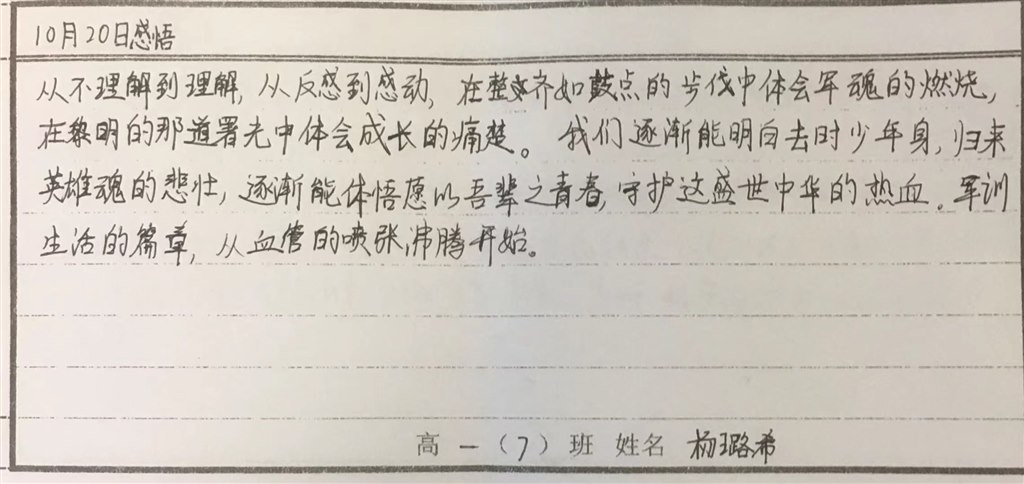 10月20日感悟
从不理解到理解,从反感到感动,在整齐如鼓点的步伐中体会军魂的燃烧,
在黎明的那道署光中体会成长的痛楚。我们逐渐能明白去时少年身,归来
英雄魂的悲壮,逐渐能体悟愿以吾辈之青春,守护这盛世中华的热血。军训
生活的篇章,从血管的喷张沸腾开始。
高一(7)班 姓名 杨璐希